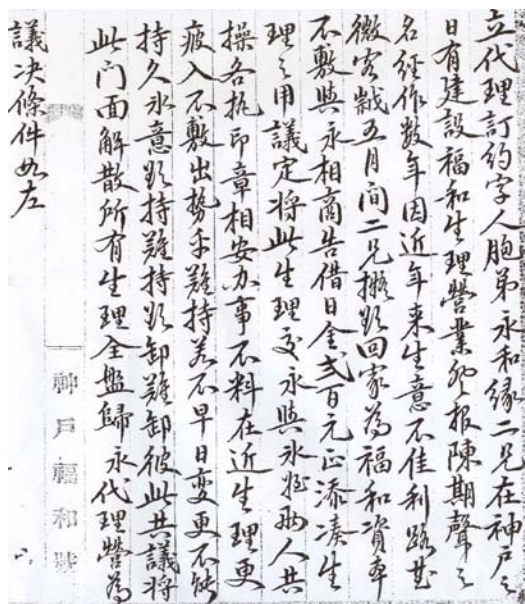 立代理訂約字人胞弟永和緣二兄在神戶之
日有建設福和生理營業已報陳期聲之
名經作數年因近年來生意不佳利路甚
微客歲五月間二兄擬欲回家為福和資本
不敷與永相商告借日金弍百元正添湊生
理之用議定將此生理交永與永 兩人共
操各執印章相安办事不料在近生理更
疲入不敷出勢乎難持若不早日變更不能
持久永意欲持難持欲卸難卸彼此共議將
此门面解散所有生理全盤歸永代理營為
神戶福和號
議決條件如左